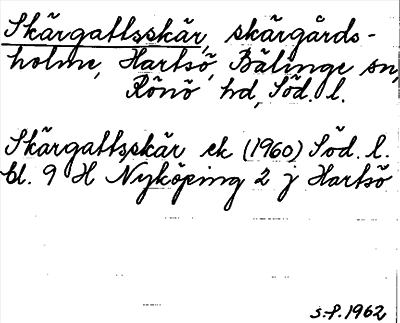 Skärgattsskär, skärgårds-
holme, Hartsö, Bälinge sn,
Rönö hd, Söd. l.
Skärgattsskär ek (1960) Söd. l.
bl. 9 H Nyköping 2 j Hartsö
s.f. 1962